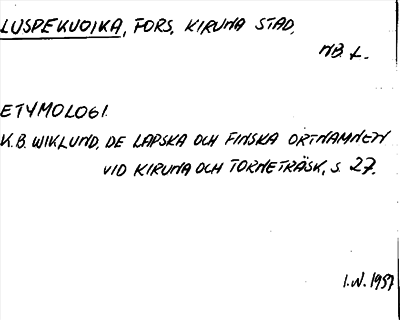 LUSPEKUOIKA, FORS, KIRUNA STAD.
NB. L.
ETYMOLOGI.
K.B. WIKLUND, DE LAPSKA OCH FINSKA ORTNAMNEN
VID KIRUNA OCH TORNETRÄSK, S. 27.
I.W. 1957